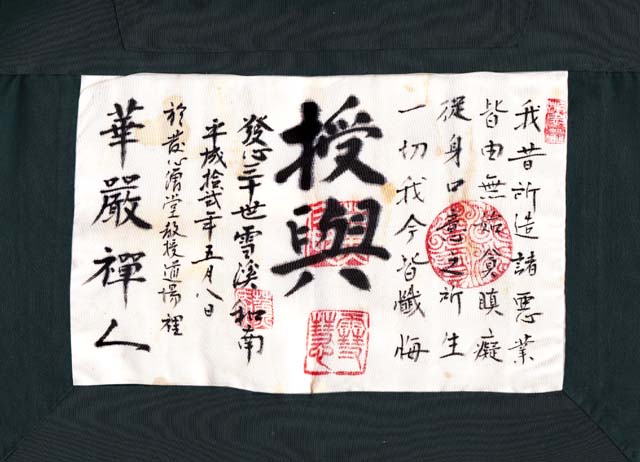 我昔所造諸悪業
皆由無始貪瞋癡
從身口意之所生
一切我今皆懺悔
授與
發心三十世雪溪和南
平成拾弐年五月八日
於發心僧堂教授道場裡
華嚴禪人